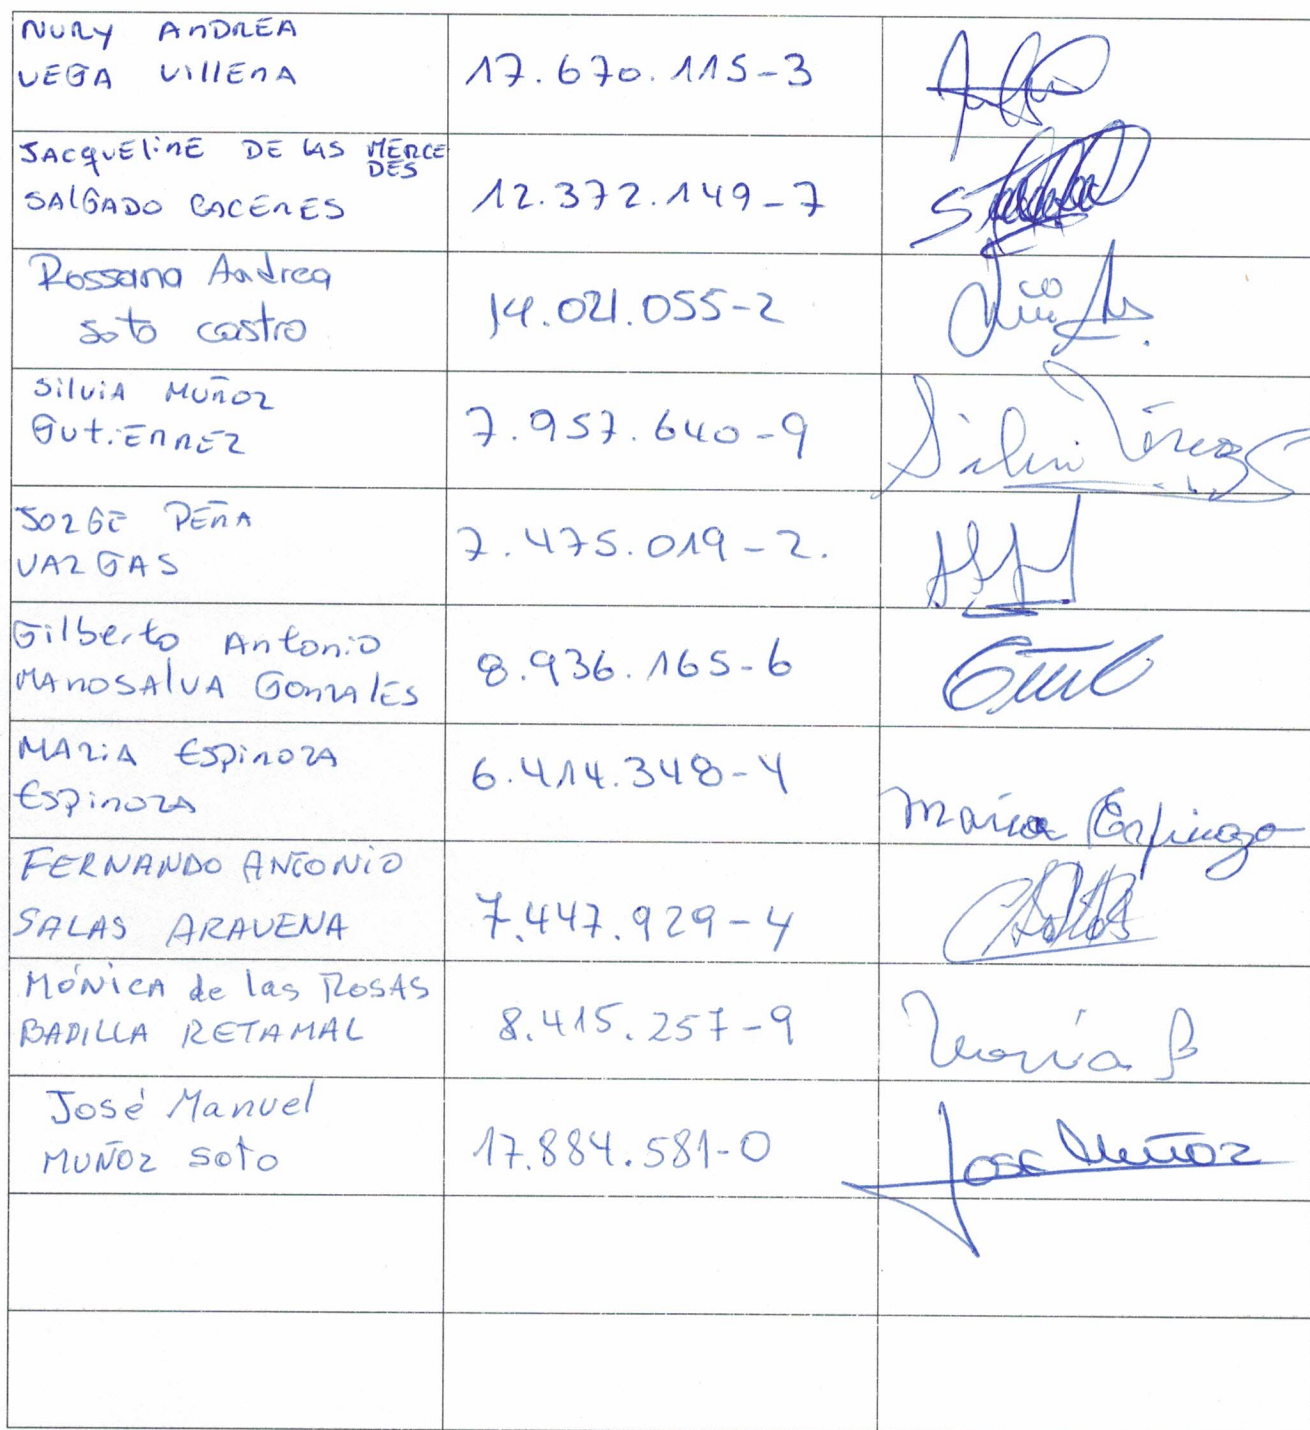 NURY ANDREA
VEGA VILLENA
17.670.115-3
JACQUELINE DE LAS MERCE
DES
SALGADO CACERES
12.372.149-7
Rossana Andrea
soto castro
14.021.055-2
SILVIA MUÑOZ
GUTIERREZ
7.957.640-9
JORGE PEÑA
VARGAS
7.475.019-2.
Gilberto Antonio
MANOSALVA GONZALES
8.936.165-6
MARIA ESPINOZA
ESPINOZA
6.414.348-4
María Espinoza
FERNANDO ANTONIO
SALAS ARAVENA
7.447.929-4
MÓNICA de las ROSAS
BADILLA RETAMAL
8.415.257-9
José Manuel
MUÑOZ SOTO
17.884.581-0
José Muñoz